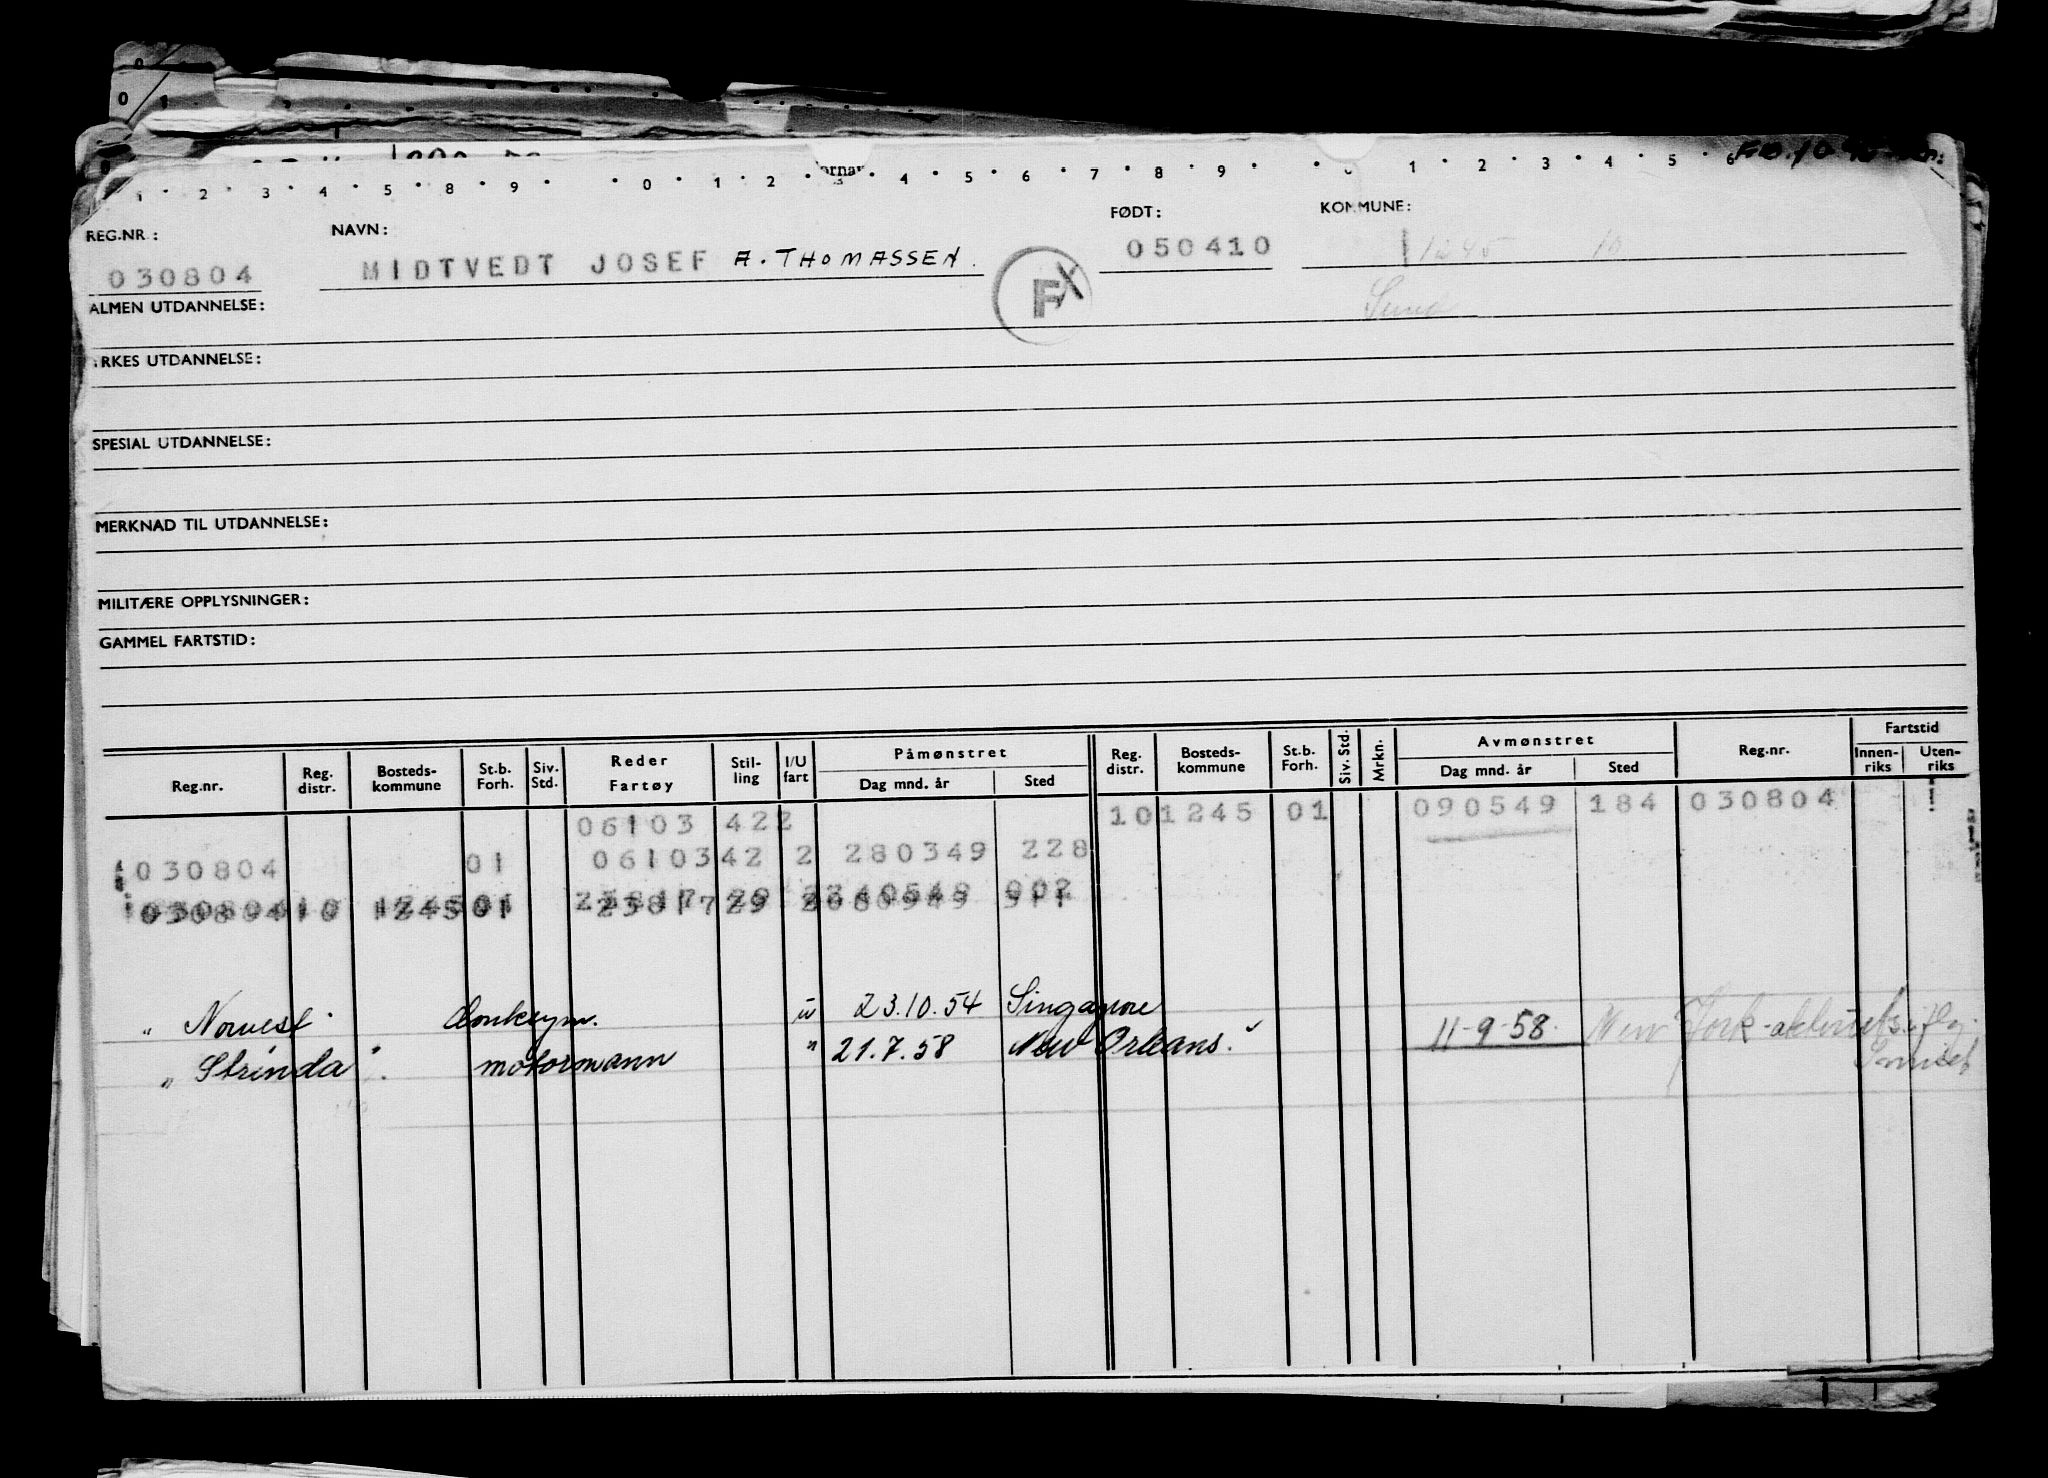 0
0 1 2 3 4 5 6 7 8 9
1 2 3 4 5 6 7 8 9 0 1 2 3 4 5 6 7 8 9 0 1 2 3 4 5 6
REG.NR.: NAVN: FØDT: KOMMUNE:
030804 MIDTVEDT JOSEF A. THOMASSEN. FX 050410 1245 10
ALMEN UTDANNELSE: Sund
YRKES UTDANNELSE:
SPESIAL UTDANNELSE:
MERKNAD TIL UTDANNELSE:
MILITÆRE OPPLYSNINGER:
GAMMEL FARTSTID:
Reg.nr. Reg. distr. Bosteds-kommune St.b. Forh. Siv. Std. Reder Fartøy Stil-ling I/U fart Påmønstret Dag mnd. år Sted Reg. distr. Bosteds-kommune St.b. Forh. Siv. Std. Mrkn. Avmønstret Dag mnd. år Sted Reg.nr. Fartstid Innen-riks Uten-riks
06103 422 101245 01 090549 184 030804
030804 01 06103 42 2 280349 228
10 1245 01 23817 29
" Norvest donkeym. u 23.10.54 Singapore
" Strinda motormann " 21.7.58 New Orleans. 11-9-58. New York